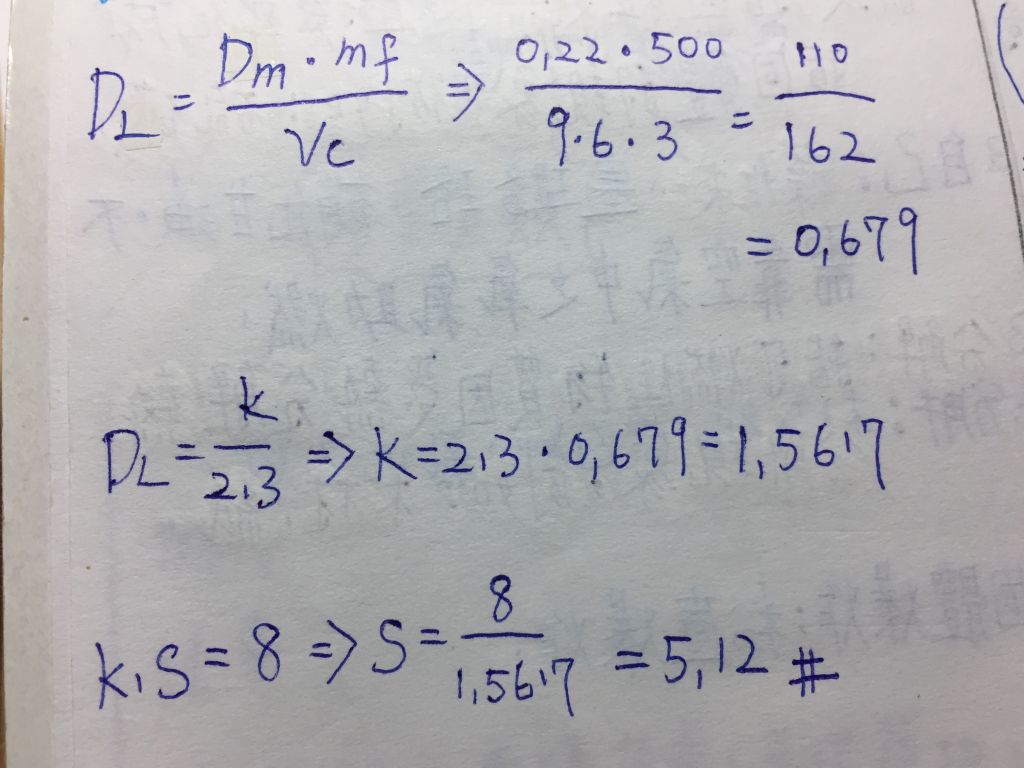 D_L = (D_m · m_f) / V_c ⇒ (0,22 · 500) / (9 · 6 · 3) = 110 / 162
= 0,679
D_L = k / 2,3 ⇒ K = 2,3 · 0,679 = 1,5617
K · S = 8 ⇒ S = 8 / 1,5617 = 5,12 #